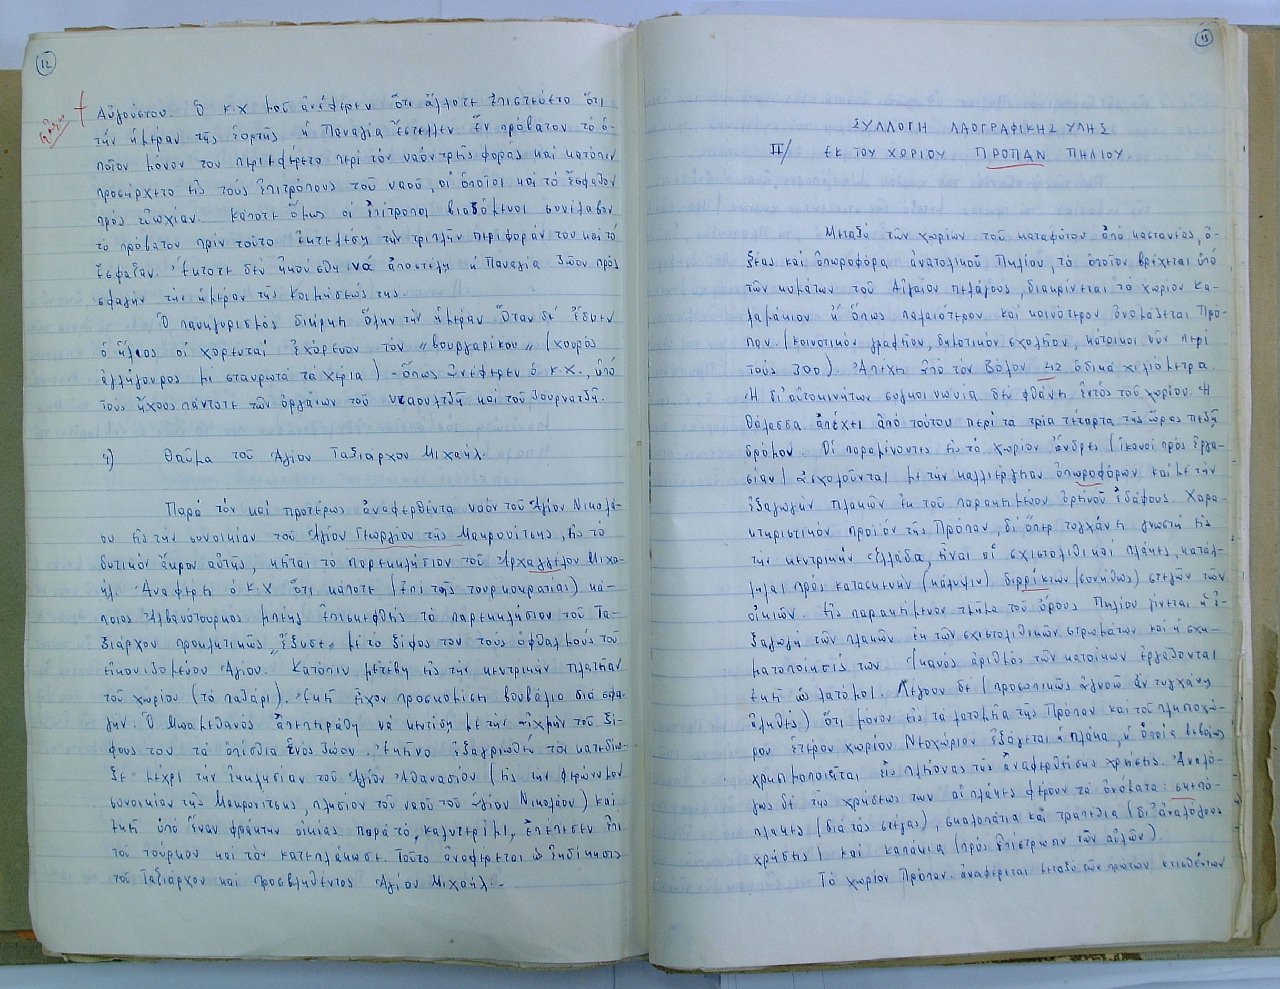 12
Αὐγούστου. Ὁ κ.χ μοῦ ἀνέφερεν ὅτι ἄλλοτε ἐπιστεύετο ὅτι
τὴν ἡμέραν τῆς ἑορτῆς ἡ Παναγία ἔστελλεν ἕν πρόβατον τὸ ὁ-
ποῖον μόνον του περιεφέρετο περὶ τὸν ναὸν τρεῖς φοράς καὶ κατόπιν
προσήρχετο εἰς τοὺς ἐπιτρόπους τοῦ ναοῦ, οἱ ὁποῖοι καὶ τὸ ἔσφαζον
πρὸς εὐωχίαν. Κάποτε ὅμως οἱ ἐπίτροποι βιαζόμενοι συνέλαβον
τὸ πρόβατον πρὶν τοῦτο ἐκτελέση τὴν τριπλῆν περιφοράν του καὶ τὸ
ἔσφαξαν. Ἔκτοτε δὲν ἠκούσθη ἵνα ἀποστείλη ἡ Παναγία ζῶον πρὸς
σφαγὴν τὴν ἡμέραν τῆς Κοιμήσεώς της.
Ὁ πανηγυρισμὸς διήρκει ὅλην τὴν ἡμέραν. Ὅταν δὲ ἔδυεν
ὁ ἥλιος οἱ χορευταὶ ἐχόρευον τὸν „βουργαρίκον" (χορὸς
ἀλλήγορος μὲ σταυρωτὰ τὰ χέρια) - ὅπως ἀνέφερεν ὁ κ.χ., ὑπὸ
τοὺς ἤχους πάντοτε τῶν ὀργάνων τοῦ νταουλτζῆ καὶ τοῦ ζουρνατζῆ.
Θαῦμα τοῦ Ἁγίου Ταξιάρχου Μιχαήλ.
Παρὰ τὸν καὶ προτέρως ἀναφερθέντα ναὸν τοῦ Ἁγίου Νικολά-
ου εἰς τὴν συνοικίαν τοῦ Ἁγίου Γεωργίου τῆς Μακρυνίτσης, εἰς τὸ
δυτικὸν ἄκρον αὐτῆς, κεῖται τὸ παρεκκλήσιον τοῦ Ἀρχαγγέλου Μιχα-
ήλ. Ἀναφέρει ὁ κ.χ ὅτι κάποτε (ἐπὶ τῆς τουρκοκρατίας) κά-
ποιος Ἀλβανότουρκος μπέης ἐπισκεφθεὶς τὸ παρεκκλήσιον τοῦ Τα-
ξιάρχου προκλητικῶς „ἔξυσε" μὲ τὸ ξίφος του τοὺς ὀφθαλμοὺς τοῦ
εἰκονιζομένου Ἁγίου. Κατόπιν μετέβη εἰς τὴν κεντρικὴν πλατεῖαν
τοῦ χωρίου (τὸ παζάρι). Ἐκεῖ εἶχον προσκομίσει βουβάλια διὰ σφα-
γήν. Ὁ Μωαμεθανὸς ἀπεπειράθη νὰ κεντίση μὲ τὴν αἰχμὴν τοῦ ξί-
φους του τὰ ὀπίσθια ἑνὸς ζώου. Ἐκεῖνο ἐξαγριωθὲν τὸν κατεδίω-
ξε μέχρι τὴν ἐκκλησίαν τοῦ Ἁγίου Ἀθανασίου (εἰς τὴν φερώνυμον
συνοικίαν τῆς Μακρυνίτσης, πλησίον τοῦ ναοῦ τοῦ Ἁγίου Νικολάου) καὶ
ἐκεῖ ὑπὸ ἕναν φράκτην οἰκίας παρὰ τὸ „καλντερίμι„ ἐπέπεσεν ἐπὶ
τοῦ τούρκου καὶ τὸν κατεπλάκωσε. Τοῦτο ἀναφέρεται ὡς ἐκδίκησις
τοῦ Ταξιάρχου καὶ προσβληθέντος Ἁγίου Μιχαήλ.-
13
ΣΥΛΛΟΓΗ ΛΑΟΓΡΑΦΙΚΗΣ ΥΛΗΣ
II/ ΕΚ ΤΟΥ ΧΩΡΙΟΥ ΠΡΟΠΑΝ ΠΗΛΙΟΥ
Μεταξὺ τῶν χωρίων τοῦ καταφύτου ἀπὸ καστανέας, ὀ-
ξέας καὶ ὀπωροφόρα ἀνατολικοῦ Πηλίου, τὸ ὁποῖον βρέχεται ὑπὸ
τῶν κυμάτων τοῦ Αἰγαίου πελάγους, διακρίνεται τὸ χωρίον Κα-
λαμάκιον ἢ ὅπως παλαιότερον καὶ κοινότερον ὀνομάζεται Πρό-
παν. (Κοινοτικὸν γραφεῖον, δημοτικὸν σχολεῖον, κάτοικοι νῦν περὶ
τοὺς 300). Ἀπέχει ἀπὸ τὸν Βόλον 42 ὁδικὰ χιλιόμετρα.
Ἡ δι' αὐτοκινήτων συγκοινωνία δὲν φθάνει ἐντὸς τοῦ χωρίου. Ἡ
θάλασσα ἀπέχει ἀπὸ τούτου περὶ τὰ τρία τέταρτα τῆς ὥρας πεζῆ
δρόμον. Οἱ παραμένοντες εἰς τὸ χωρίον ἄνδρες (ἱκανοὶ πρὸς ἐργα-
σίαν) ἀσχολοῦνται μὲ τὴν καλλιέργειαν ὀπωροφόρων καὶ μὲ τὴν
ἐξαγωγὴν πλακῶν ἐκ τοῦ παρακειμένου ὀρεινοῦ ἐδάφους. Χαρα-
κτηριστικὸν προϊὸν τῆς Πρόπαν, δι' ὅπερ τυγχάνει γνωστὴ εἰς
τὴν κεντρικὴν Ἑλλάδα, εἶναι αἱ σχιστολιθικαὶ πλάκες, κατάλ-
ληλαι πρὸς κατασκευὴν (κάλυψιν) διρρίκτων (συνήθως) στεγῶν τῶν
οἰκιῶν. Εἰς παρακείμενον τμῆμα τοῦ ὄρους Πηλίου γίνεται ἡ ἐ-
ξαγωγὴ τῶν πλακῶν ἐκ τῶν σχιστολιθικῶν στρωμάτων καὶ ἡ σχη-
ματοποίησίς των. Ἱκανὸς ἀριθμὸς τῶν κατοίκων ἐργάζονται
ἐκεῖ ὡς λατόμοι. Λέγουν δὲ (προσωπικῶς ἀγνοῶ ἂν τυγχάνη
ἀληθὲς) ὅτι μόνον εἰς τὰ λατομεῖα τῆς Πρόπαν καὶ τοῦ πλησιοχώ-
ρου ἑτέρου χωρίου Νεοχώριον ἐξάγεται ἡ πλάκα, ἡ ὁποία βεβαίως
χρησιμοποιεῖται εἰς πλείονας τῆς ἀναφερθείσης χρήσεις. Ἀναλό-
γως δὲ τῆς χρήσεώς των αἱ πλάκες φέρουν τὰ ὀνόματα: σκεπό-
πλακες (διὰ τὰς στέγας), σκαλοπάτια καὶ τραπέζια (δι' ἀναλόγους
χρήσεις) καὶ καπάκια (πρὸς ἐπίστρωσιν τῶν αὐλῶν).
Τὸ χωρίον Πρόπαν ἀναφέρεται μεταξὺ τῶν πρώτων κτισθέντων